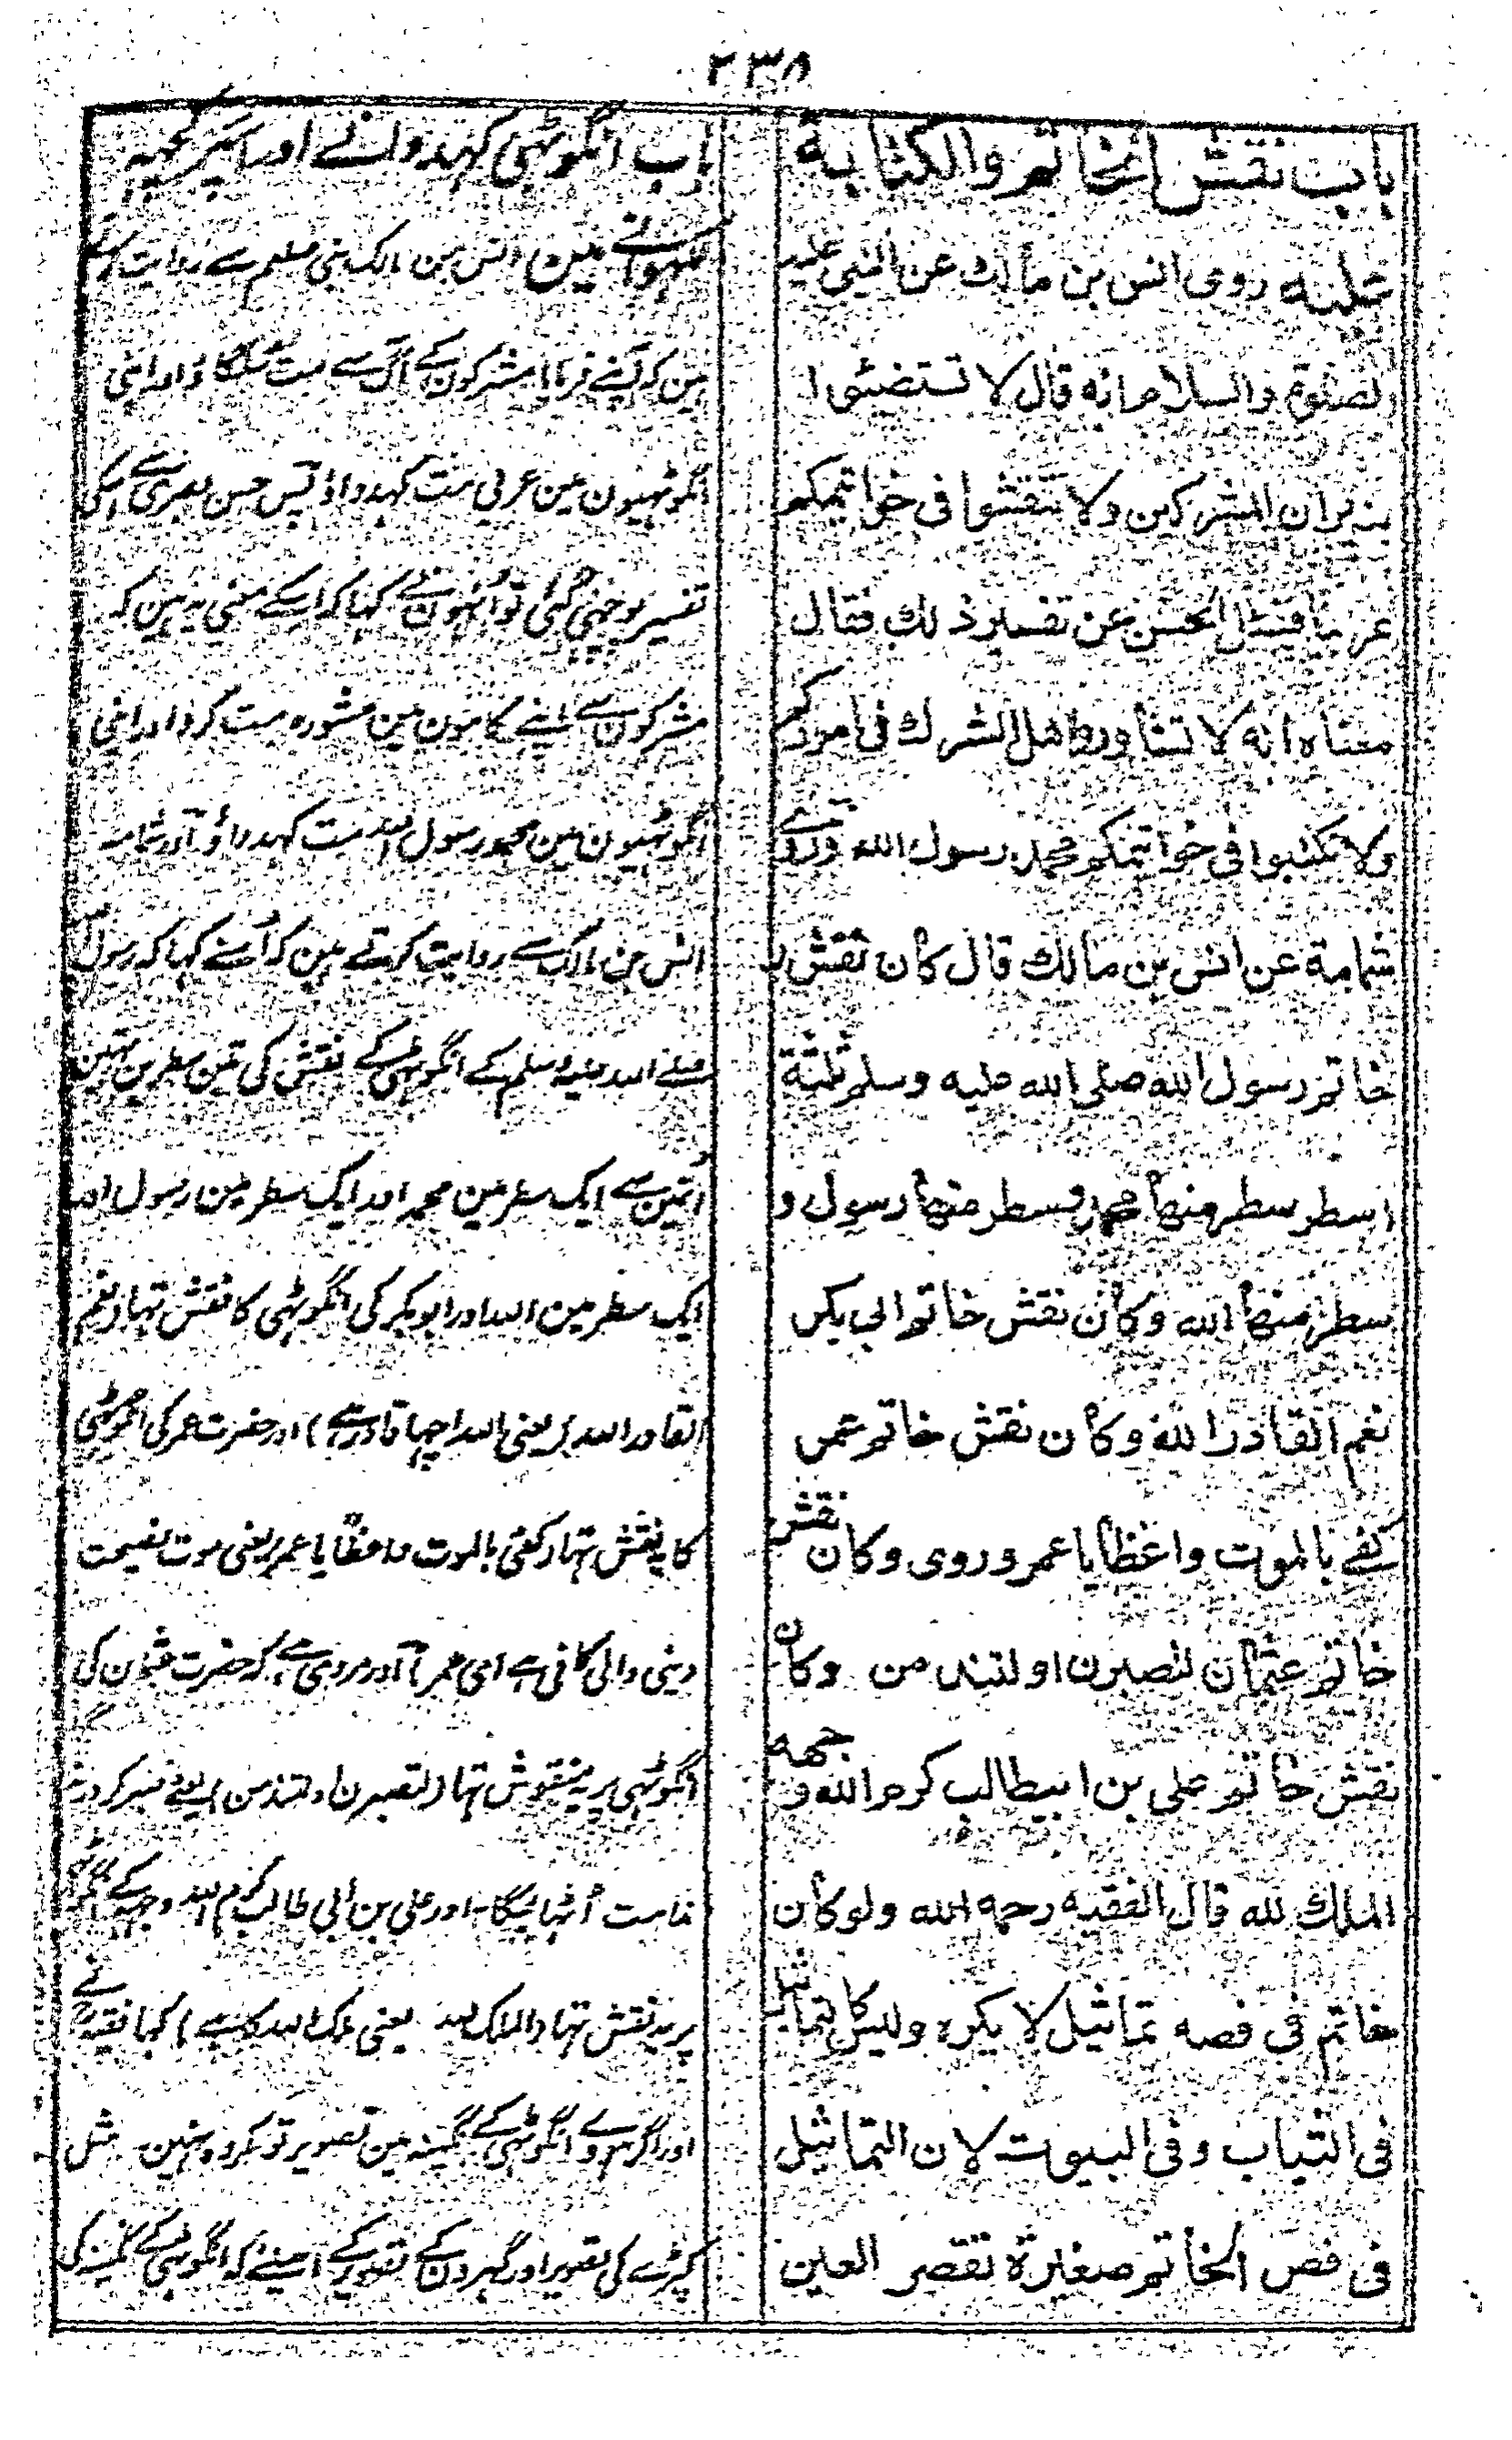 ۲۳۸
باب نقش الخاتم والكتابة
علیه روى انس بن مالك عن النبى عليه
الصلوة والسلام انه قال لا تستضيئوا
بنيران المشركين ولا تنقشوا فى خواتيمكم
عربيا فسئل الحسن عن تفسير ذلك فقال
معناه انه لا تشاوروا اهل الشرك فى اموركم
ولا تكتبوا فى خواتيمكم محمد رسول الله وروى
ثمامة عن انس بن مالك قال كان نقش
خاتم رسول الله صلى الله عليه وسلم ثلثة
اسطر سطر منها محمد وسطر منها رسول و
سطر منها الله وكان نقش خاتم ابى بكر
نعم القادر الله وكان نقش خاتم عمر
كفے بالموت واعظا يا عمر وروى وكان نقش
خاتم عثمان لتصبرن او لتندمن وكان
نقش خاتم على بن ابيطالب كرم الله وجهه
الملك لله قال الفقيه رحمه الله ولو كان
خاتم فى فصه تماثيل لا يكره وليس كتماثيل
فى الثياب وفى البيوت لان التماثيل
فى فص الخاتم صغيرة تقصر العين
باب انگوٹہی کہدوانے اور اسپر کچہہ
لکہوانے مین انس بن مالک نبی صلعم سے روایت کرتے
ہین کہ آپنے فرمایا مشرکون کے آگ سے مت سلگاؤ اور اپنی
انگوٹہیون مین عربی مت کہدواؤ پس حسن بصری سے اسکی
تفسیر پوچہی گئی تو انہون نے کہا کہ اسکے معنی یہ ہین کہ
مشرکون سے اپنے کامون مین مشورہ مت کرو اور اپنی
انگوٹہیون مین محمد رسول اللہ مت کہدواؤ۔ اور ثمامہ
انس بن مالک سے روایت کرتے ہین کہ اُسنے کہا کہ رسول اللہ
صلے اللہ علیہ وسلم کے انگوٹہی کے نقش کی تین سطرین تہین
اُنمین سے ایک سطر مین محمد اور ایک سطر مین رسول اور
ایک سطر مین اللہ اور ابو بکر کی انگوٹہی کا نقش تہا (نعم
القادر اللہ) یعنی اللہ اچہا قادر ہے) اور حضرت عمر کی انگوٹہی
کا یہ نقش تہا (کفی بالموت واعظاً یا عمر) یعنی موت نصیحت
دینی والی کافی ہے ای عمر۔ اور مروی ہے کہ حضرت عثمان کی
انگوٹہی پر یہ منقوش تہا (لتصبرن او لتندمن) یعنے صبر کر ورنہ
ندامت اُٹہائیگا۔ اور علی بن ابی طالب کرم اللہ وجہہ کے انگوٹہی
پر یہ نقش تہا (الملک للہ یعنی ملک اللہ کا ہے) کہا فقیہ نے
اور اگر ہووے انگوٹہی کے نگینہ مین تصویر تو مکروہ نہین۔ مثل
کپڑے کی تصویر اور گہرون کے تصویر کے اسلیئے کہ انگوٹہی کے نگینہ کی